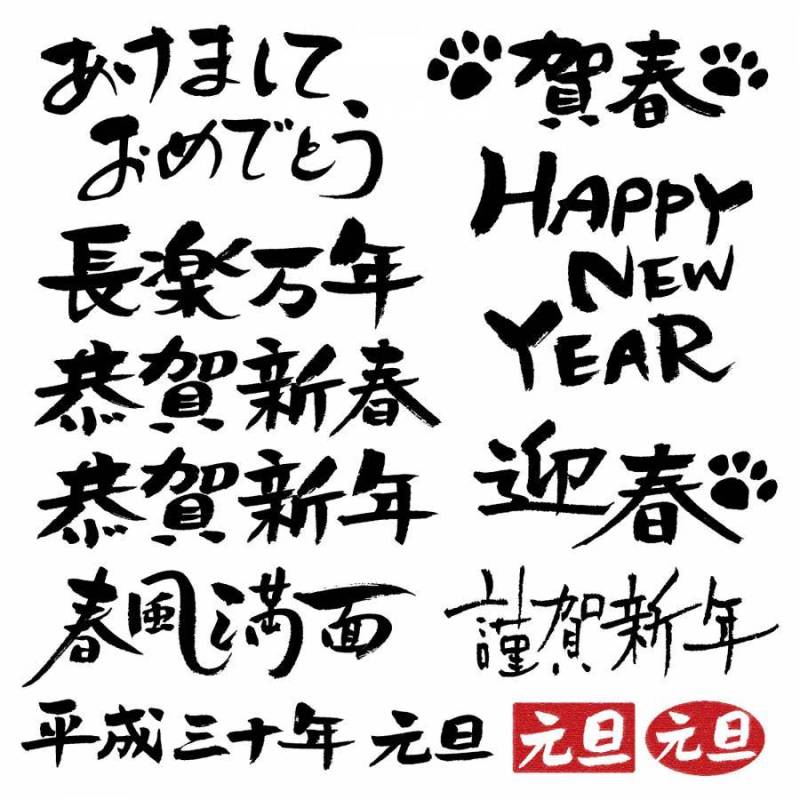 あけまして、
おめでとう
長楽万年
恭賀新春
恭賀新年
春風満面
平成三十年 元旦
賀春
HAPPY
NEW
YEAR
迎春
謹賀新年
元旦
元旦